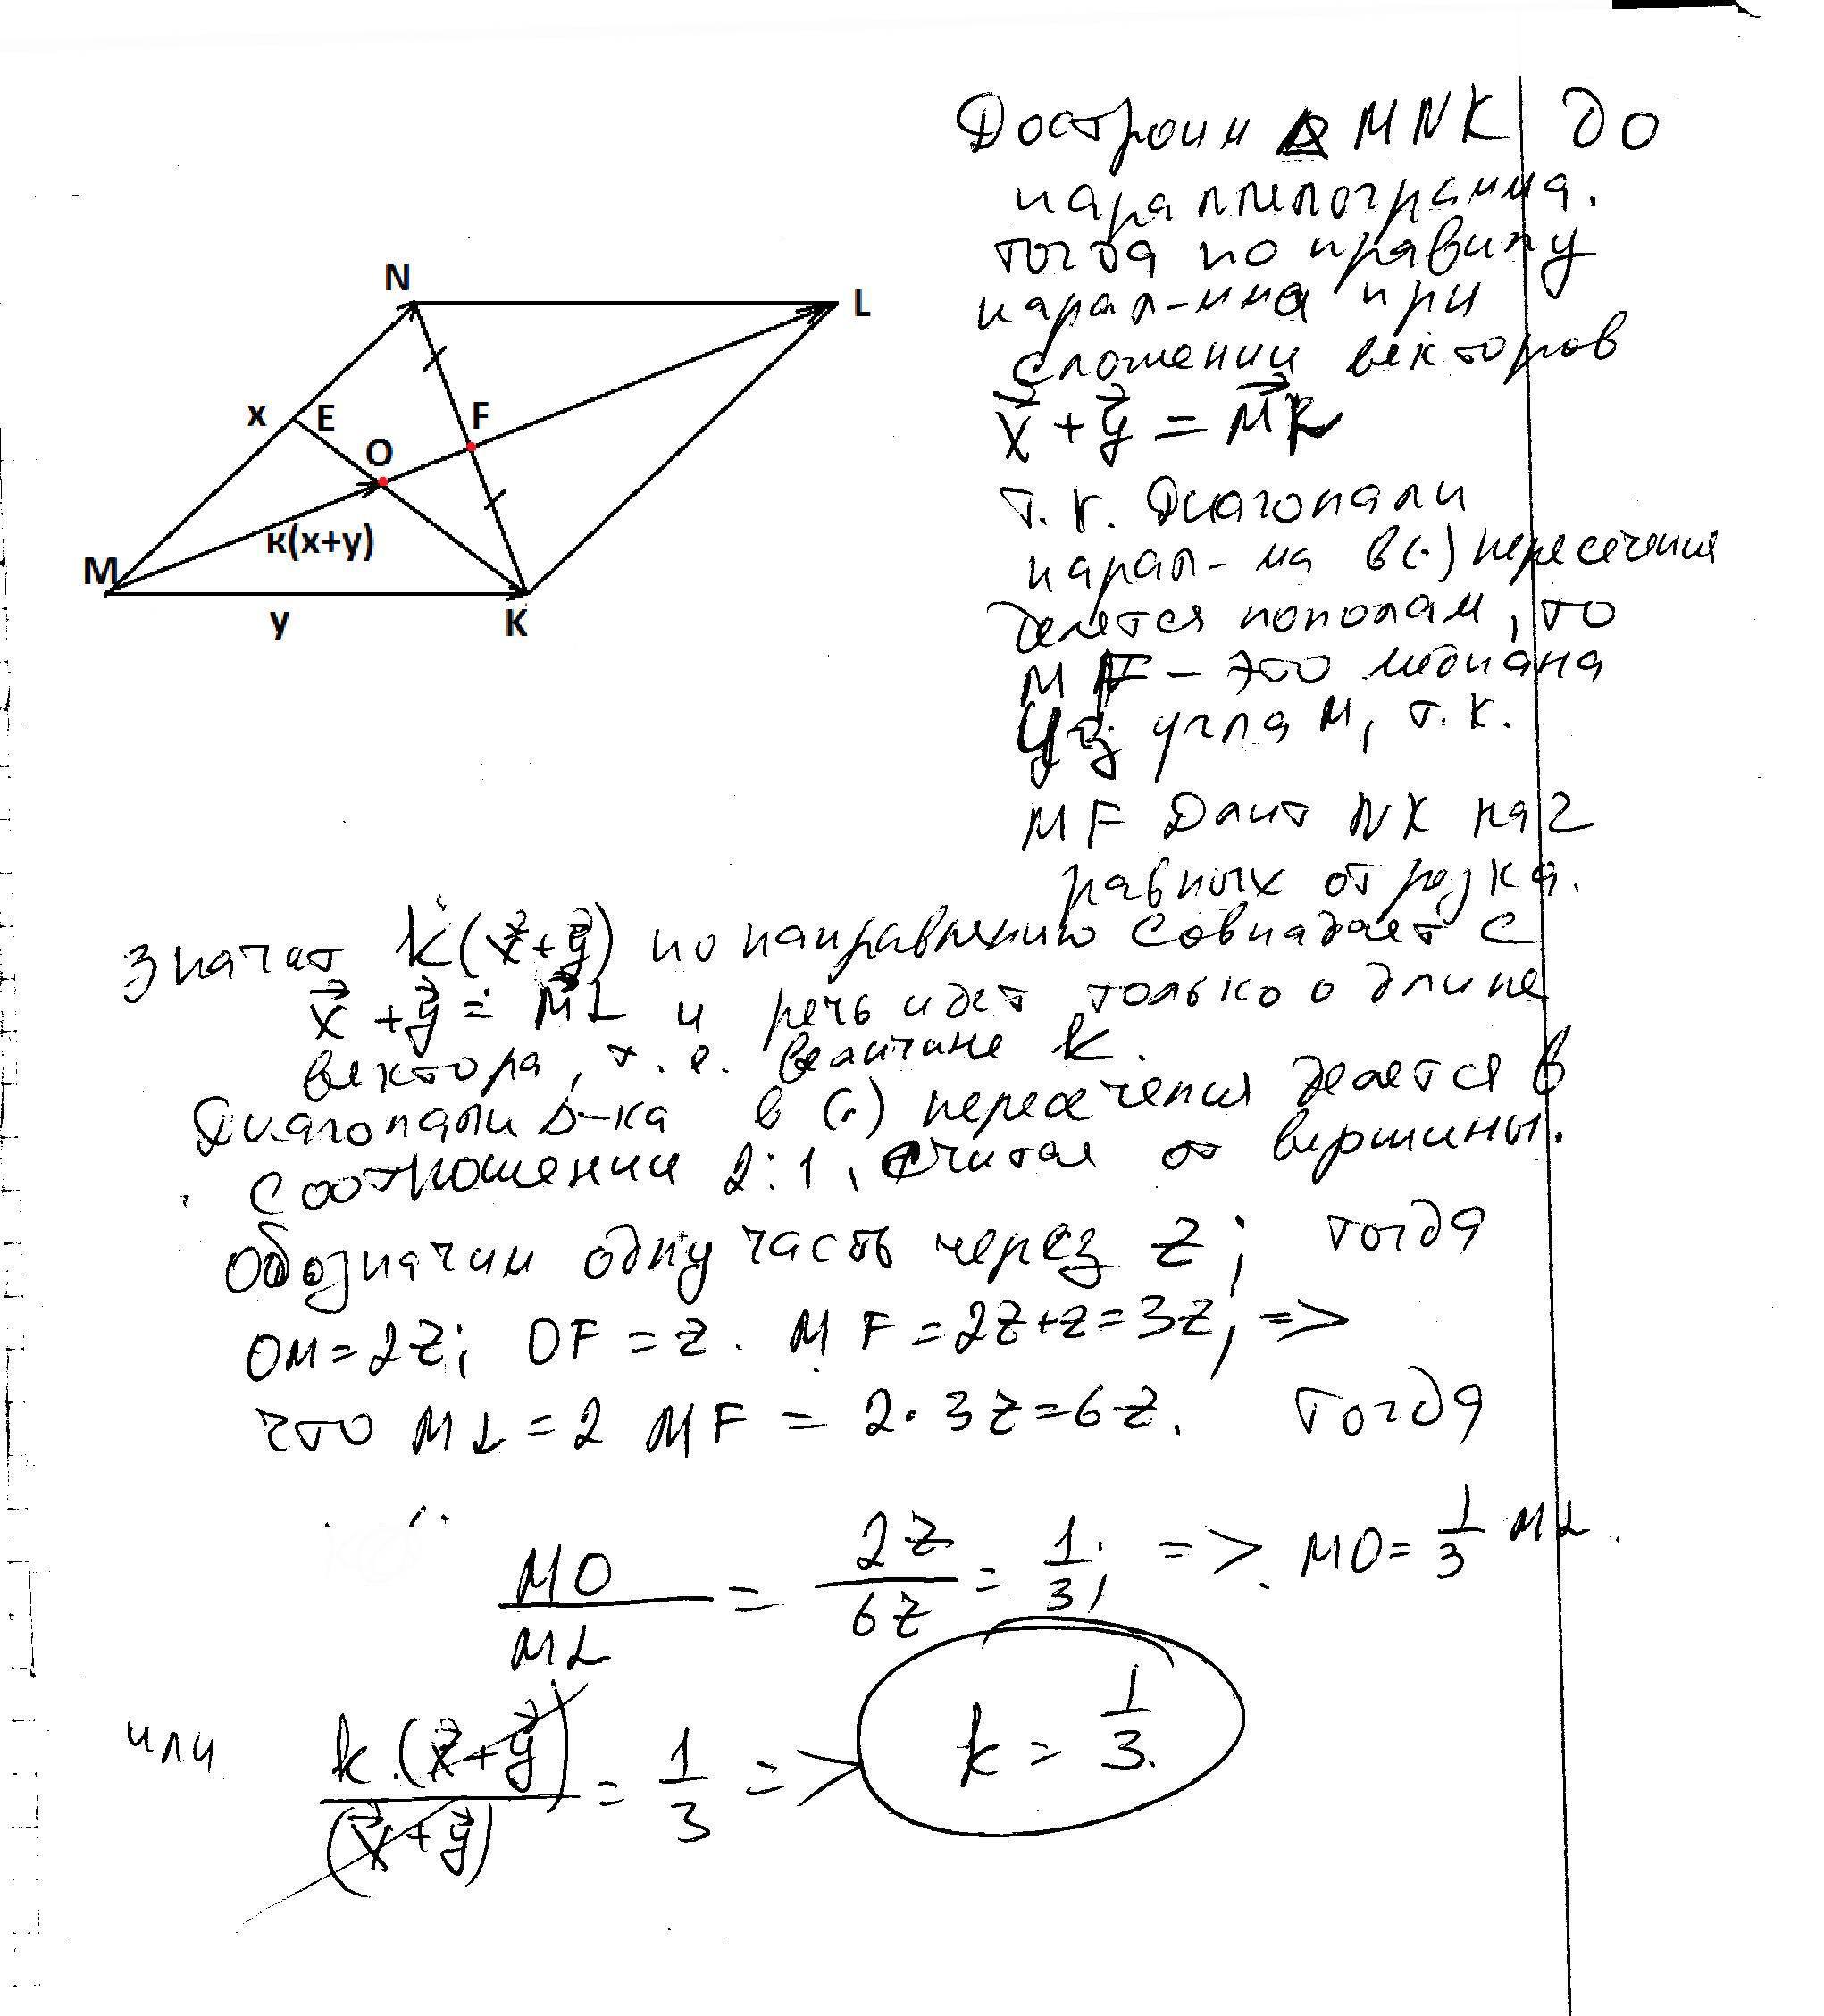 N
L
x
E
F
O
к(x+y)
M
y
K
Достроим △ MNK до
параллелограмма.
тогда по правилу
парал-мма при
сложении векторов
x⃗ + y⃗ = M⃗L
т.к. Диагонали
парал-ма в (·) пересечения
делятся пополам, то
MF – это медиана
из угла M, т.к.
MF Делит NK на 2
равных отрезка.
значит k(x⃗+y⃗) по направлению совпадает с
x⃗ + y⃗ = M⃗L и речь идет только о длине
вектора, т.е. величине k.
Диагонали △-ка в (·) пересечения делятся в
соотношении 2:1, считая от вершины.
Обозначим одну часть через z; тогда
OM = 2z; OF = z. MF = 2z+z = 3z; =>
что ML = 2 MF = 2·3z = 6z. Тогда
MO/ML = 2z/6z = 1/3; => MO = 1/3 ML.
или k·(x⃗+y⃗)/(x⃗+y⃗) = 1/3 => k = 1/3.